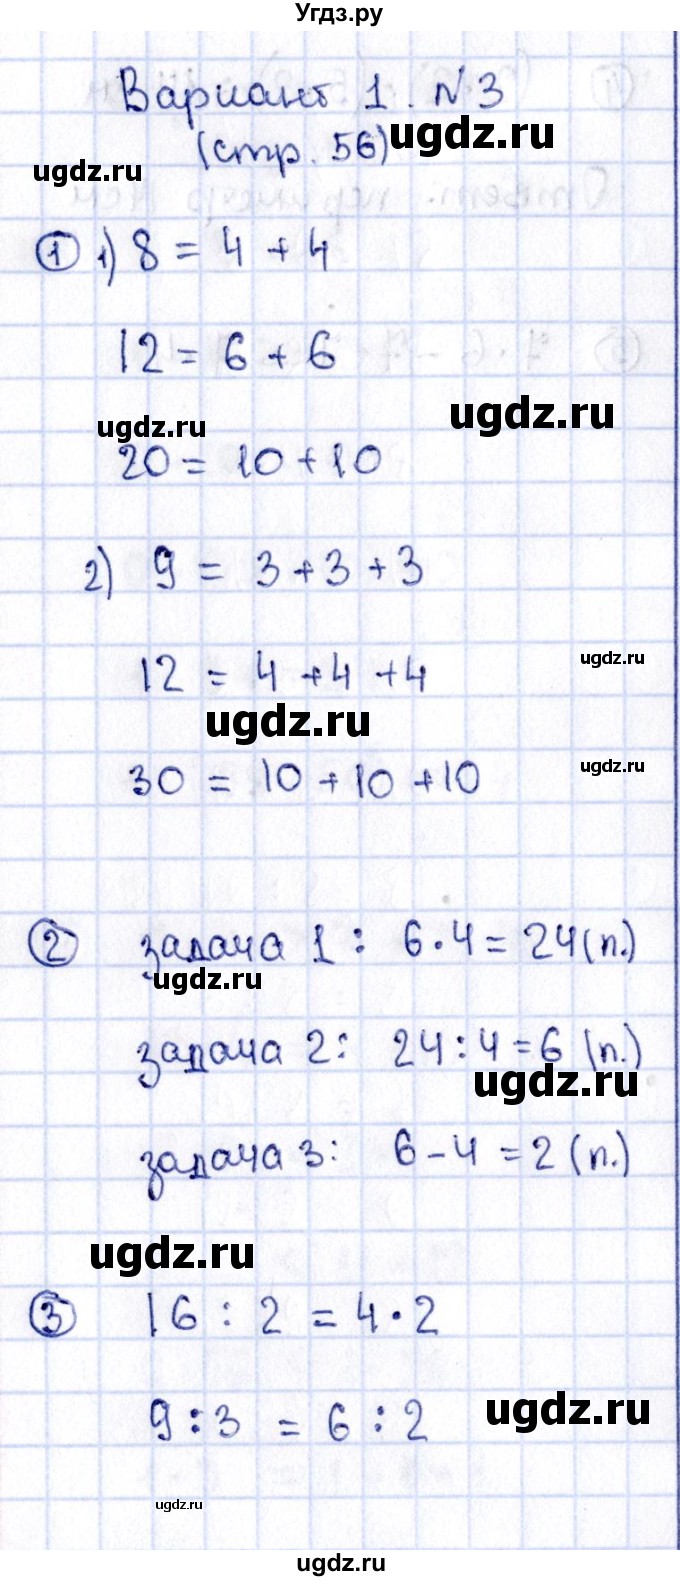 Угдз.ру
Вариант 1. №3
(стр. 56)
ugdz.ru
ugdz.ru
① 1) 8 = 4 + 4
12 = 6 + 6
ugdz.ru
ugdz.ru
20 = 10 + 10
2) 9 = 3 + 3 + 3
ugdz.ru
12 = 4 + 4 + 4
ugdz.ru
ugdz.ru
30 = 10 + 10 + 10
② задача 1: 6·4 = 24 (п.)
ugdz.ru
задача 2: 24:4 = 6 (п.)
ugdz.ru
задача 3: 6 - 4 = 2 (п.)
ugdz.ru
③ 16 : 2 = 4·2
9:3 = 6:2
ugdz.ru
ugdz.ru
ugdz.ru